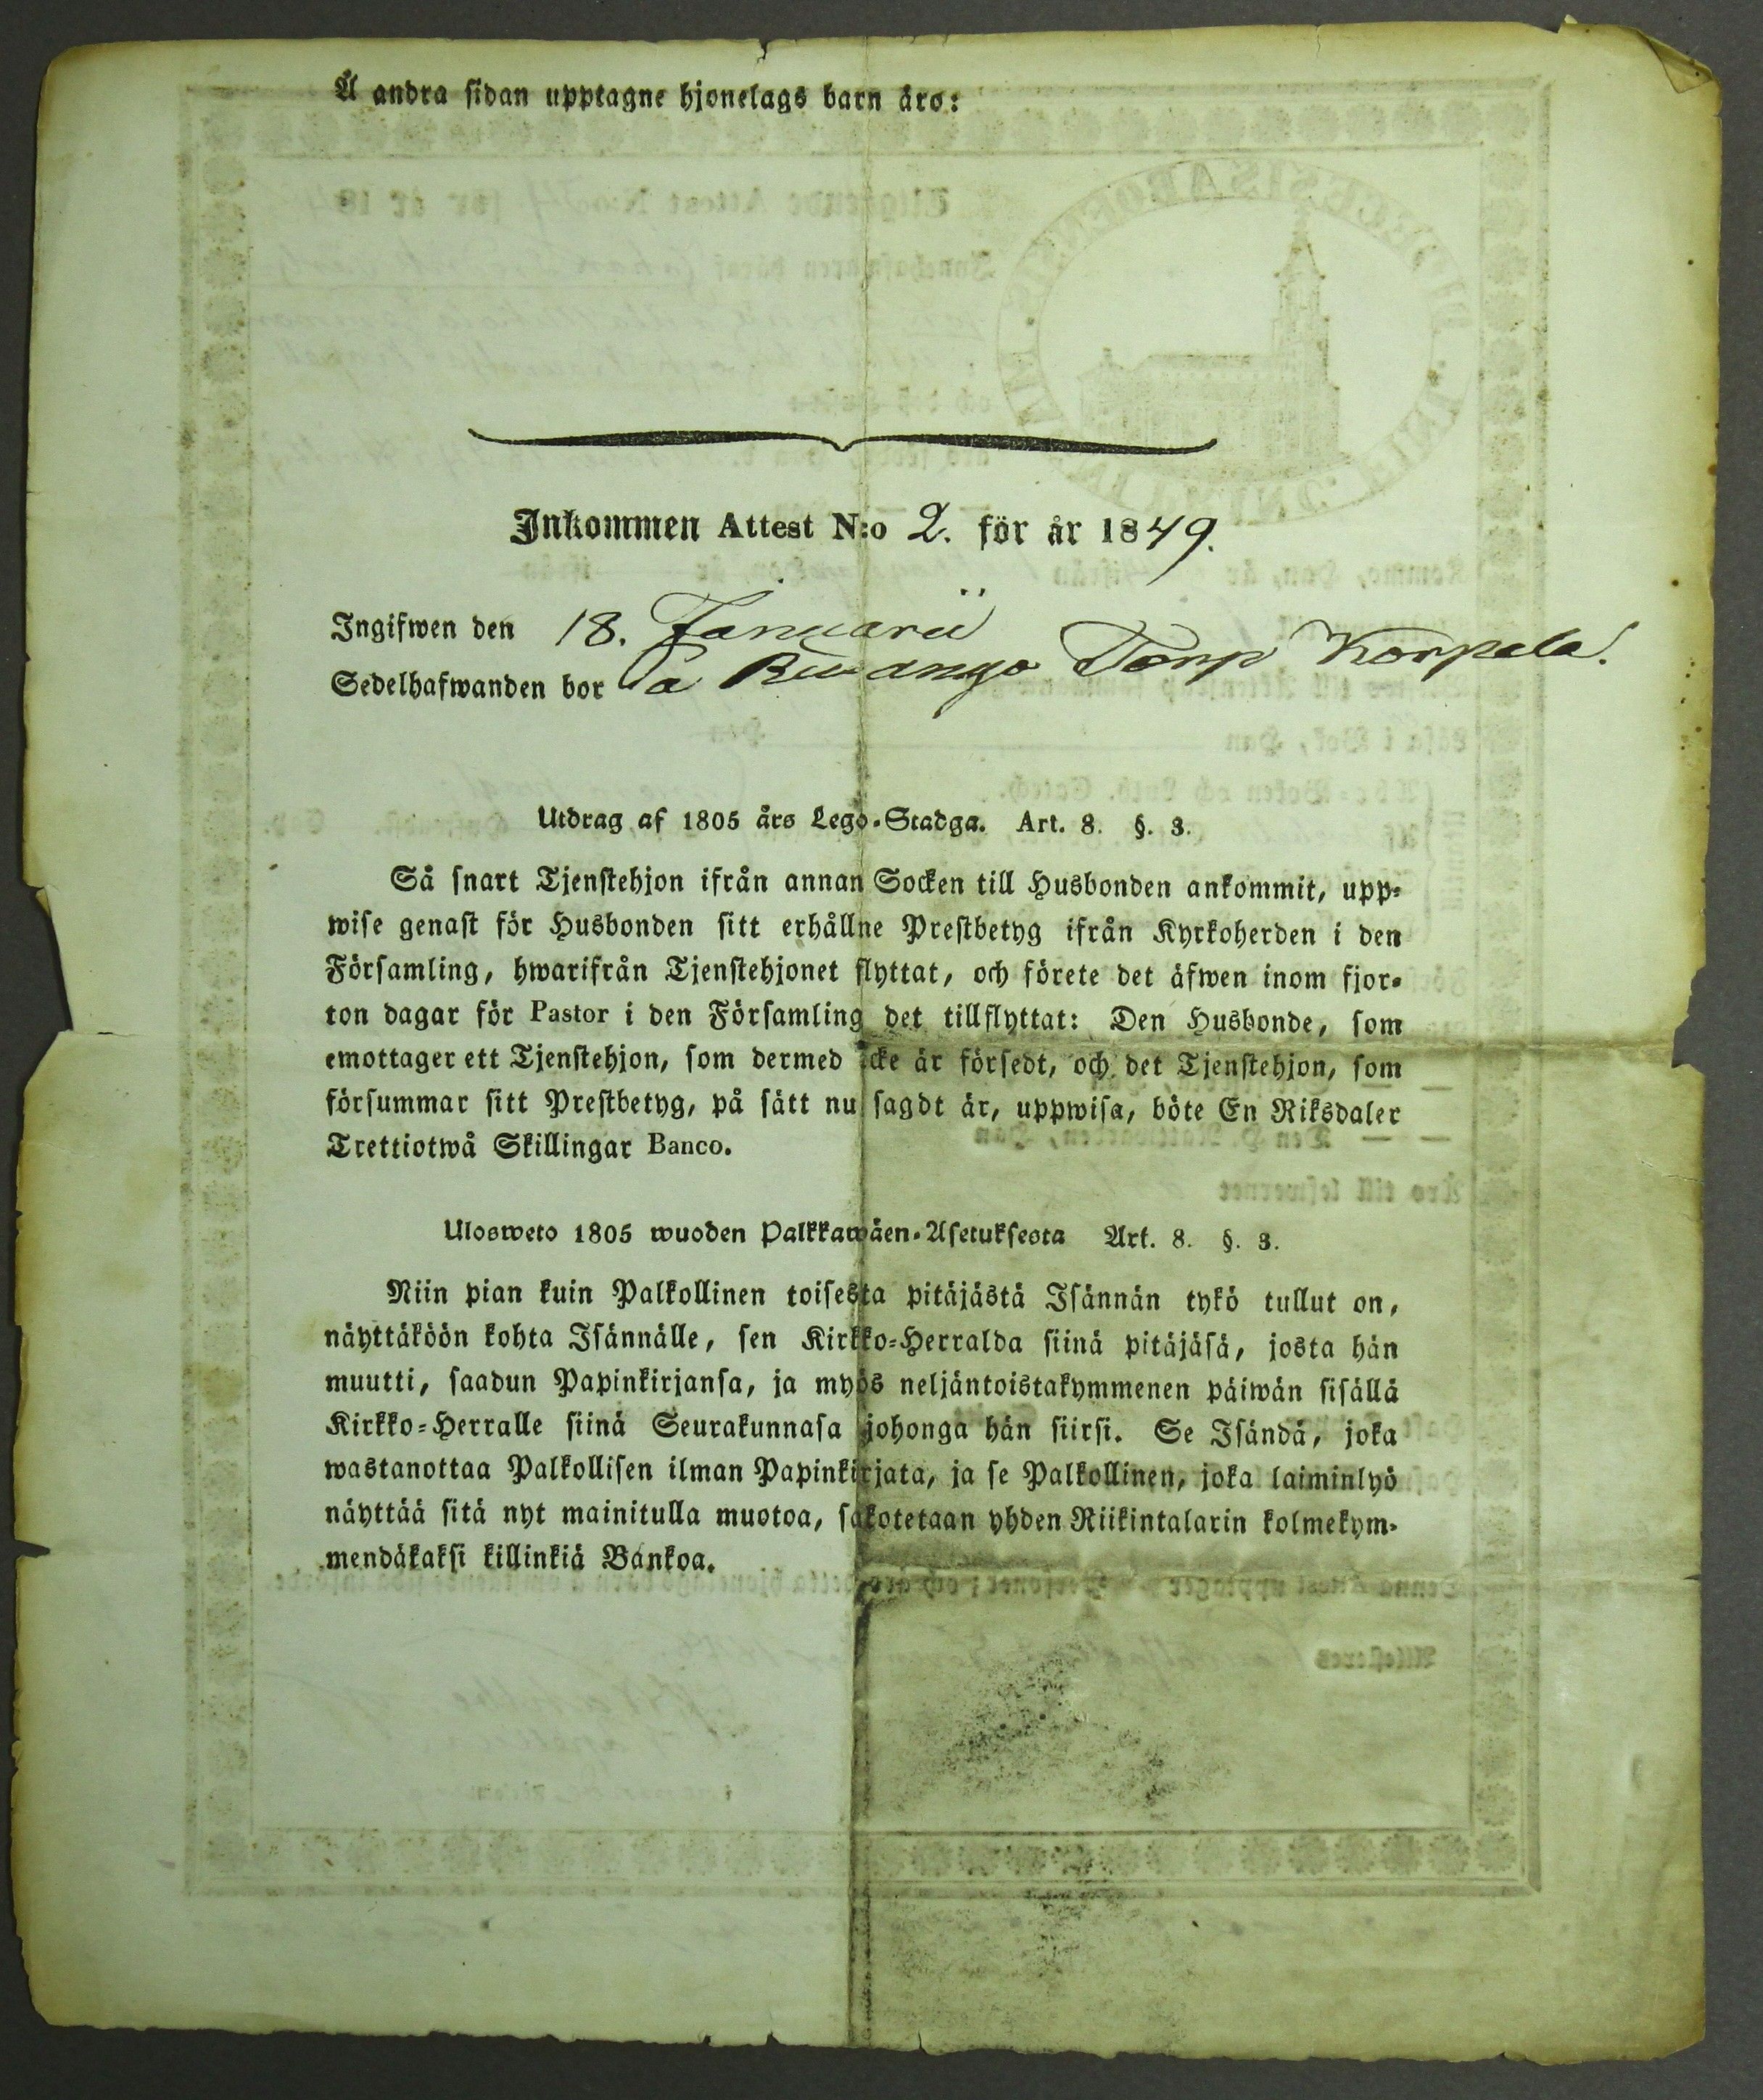 Å andra sidan upptagne hjonelags barn äro:
Inkommen Attest N:o 2. för år 1849.
Ingifwen den 18. Januarii
Sedelhafwanden bor På Torp Korpela.
Utdrag af 1805 års Lego-Stadga. Art. 8. §. 3.
Så snart Tjenstehjon ifrån annan Socken till Husbonden ankommit, upp-
wise genast för Husbonden sitt erhållne Prestbetyg ifrån Kyrkoherden i den
Församling, hwarifrån Tjenstehjonet flyttat, och förete det äfwen inom fjor-
ton dagar för Pastor i den Församling det tillflyttat: Den Husbonde, som
emottager ett Tjenstehjon, som dermed icke är försedt, och det Tjenstehjon, som
försummar sitt Prestbetyg, på sätt nu sagdt är, uppwisa, böte En Riksdaler
Trettiotwå Skillingar Banco.
Ulosweto 1805 wuoden Palkkawäen-Asetuksesta Art. 8. §. 3.
Niin pian kuin Palkollinen toisesta pitäjästä Isännän tykö tullut on,
näyttäköön kohta Isännälle, sen Kirkko-Herralda siinä pitäjäsä, josta hän
muutti, saadun Papinkirjansa, ja myös neljäntoistakymmenen päiwän sisällä
Kirkko-Herralle siinä Seurakunnasa johonga hän siirsi. Se Isändä, joka
wastanottaa Palkollisen ilman Papinkirjata, ja se Palkollinen, joka laiminlyö
näyttää sitä nyt mainitulla muotoa, sakotetaan yhden Riikintalarin kolmekym-
mendäkaksi killinkiä Bankoa.